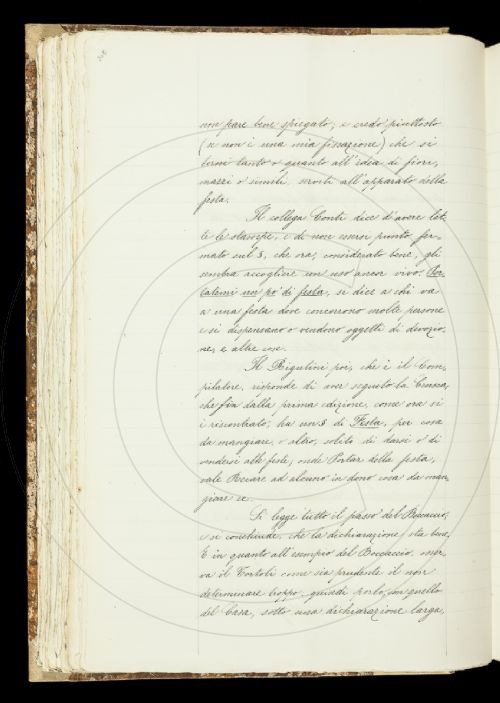 non pare bene spiegato, e credo piuttosto
(se non è una mia fissazione) che si
torni tanto o quanto all'idea di fiori,
mazzi o simili, serviti all'apparato della
festa.
Il collega Conti dice d'avere let-
te le stampe, e di non essersi punto fer-
mato sul §, che ora, considerato bene, gli
sembra accogliere un uso ancor vivo. Por
tatemi un po' di festa, si dice a chi va
a una festa dove concorrono molte persone
e si dispensano o vendono oggetti di devozio-
ne, e altre cose.
Il Rigutini poi, che è il Com-
pilatore, risponde di aver seguito la Crusca,
che fin dalla prima edizione, come ora si
è riscontrato, ha un § di Festa, per cosa
da mangiare, o altro, solito di darsi o di
vendersi alle feste, onde Portar della festa,
vale Recare ad alcuno in dono cosa da man
giare ec.
Si legge tutto il passo del Boccaccio,
e si conchiude, che la dichiarazione sta bene.
E in quanto all'esempio del Boccaccio, osser
va il Tortoli come sia prudente il non
determinare troppo, quindi porlo, con quello
del Casa, sotto una dichiarazione larga,